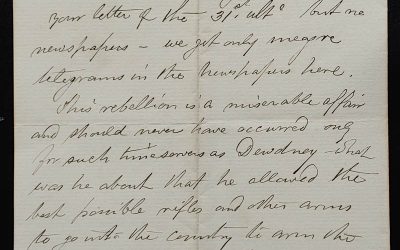 your letter of the 31st ulto but no
newspapers - we get only meagre
telegrams in the newspapers here.
This rebellion is a miserable affair
and should never have occurred only
for such timeservers as Dewdney - what
was he about that he allowed the
best possible rifles and other arms
to go into the country to arm the